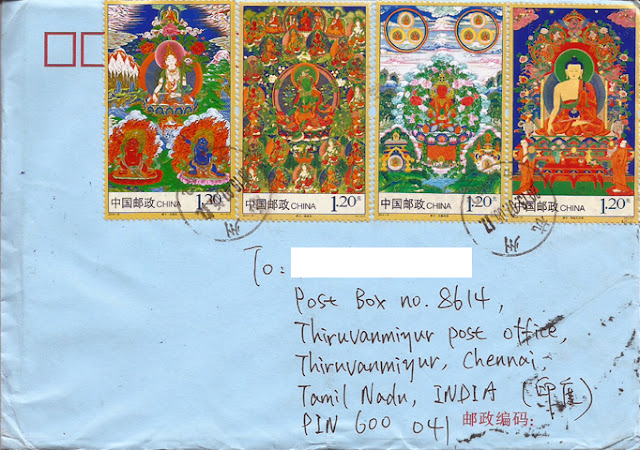 中国邮政 CHINA 1.20元
中国邮政 CHINA 1.20元
中国邮政 CHINA 1.20元
中国邮政 CHINA 1.20元
To:
Post Box no. 8614,
Thiruvanmiyur post office,
Thiruvanmiyur, Chennai,
Tamil Nadu, INDIA (印度)
PIN 600 041 邮政编码: